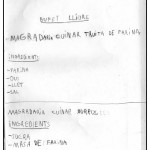 BUFET LLIURE
-MAGRADARIA CUINAR TRUITA DE FARINA
INGREDIENTS
-FARINA
-OUS
-LLET
-SAL
MAGRADARIA CUINAR
INGREDIENTS
-SUCRE
-MASA DE FARINA